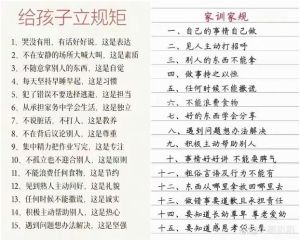 给孩子立规矩
1. 哭没有用，有话好好说，这是表达
2. 不在安静的场所大喊大叫，这是素质
3. 不随意拿别人的东西，这是自觉
4. 每天坚持早睡早起，这是习惯
5. 犯了错误不要选择逃避，这是担当
6. 从承担家务中学会生活，这是独立
7. 不说脏话，不打人，这是教养
8. 不在背后议论别人，这是尊重
9. 集中精力把作业写完，这是专注
10. 不孤立也不迎合别人，这是原则
11. 不能浪费任何食物，这是节约
12. 见到熟人主动问好，这是礼貌
13. 任何时候不能撒谎，这是诚实
14. 积极主动帮助别人，这是热心
15. 遇到问题想办法解决，这是坚强
家训家规
一、自己的事情自己做
二、见人主动打招呼
三、别人的东西不能拿
四、做事持之以恒
五、任何时候不能撒谎
六、不能浪费食物
七、好的东西学会分享
八、遇到问题想办法解决
九、积极主动帮助别人
十、事情好好讲 不能耍脾气
十一、粗俗言语及行为不能有
十二、东西从哪里拿放回哪里去
十三、做错事要道歉且承担责任
十四、要知道长幼尊卑 孝老爱幼
十五、要知道感恩 孝敬长辈